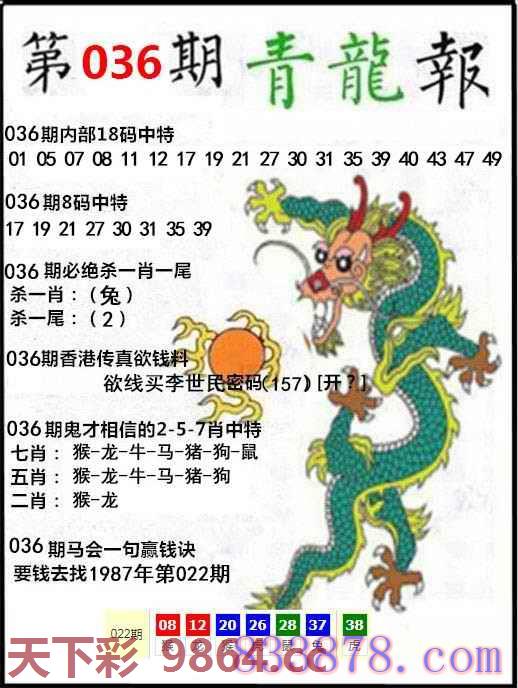 第036期青龍報
036期内部18码中特
01 05 07 08 11 12 17 19 21 27 30 31 35 39 40 43 47 49
036期8码中特
17 19 21 27 30 31 35 39
036期必绝杀一肖一尾
杀一肖：（兔）
杀一尾：（2）
036期香港传真欲钱料
欲线买李世民密码(157)[开？]
036期鬼才相信的2-5-7肖中特
七肖：猴-龙-牛-马-猪-狗-鼠
五肖：猴-龙-牛-马-猪-狗
二肖：猴-龙
036期马会一句赢钱诀
要钱去找1987年第022期
022期 08 12 20 26 28 37 38
猴 龙 猴 虎 鼠 兔 虎
天下彩 9864.cc
838878.com